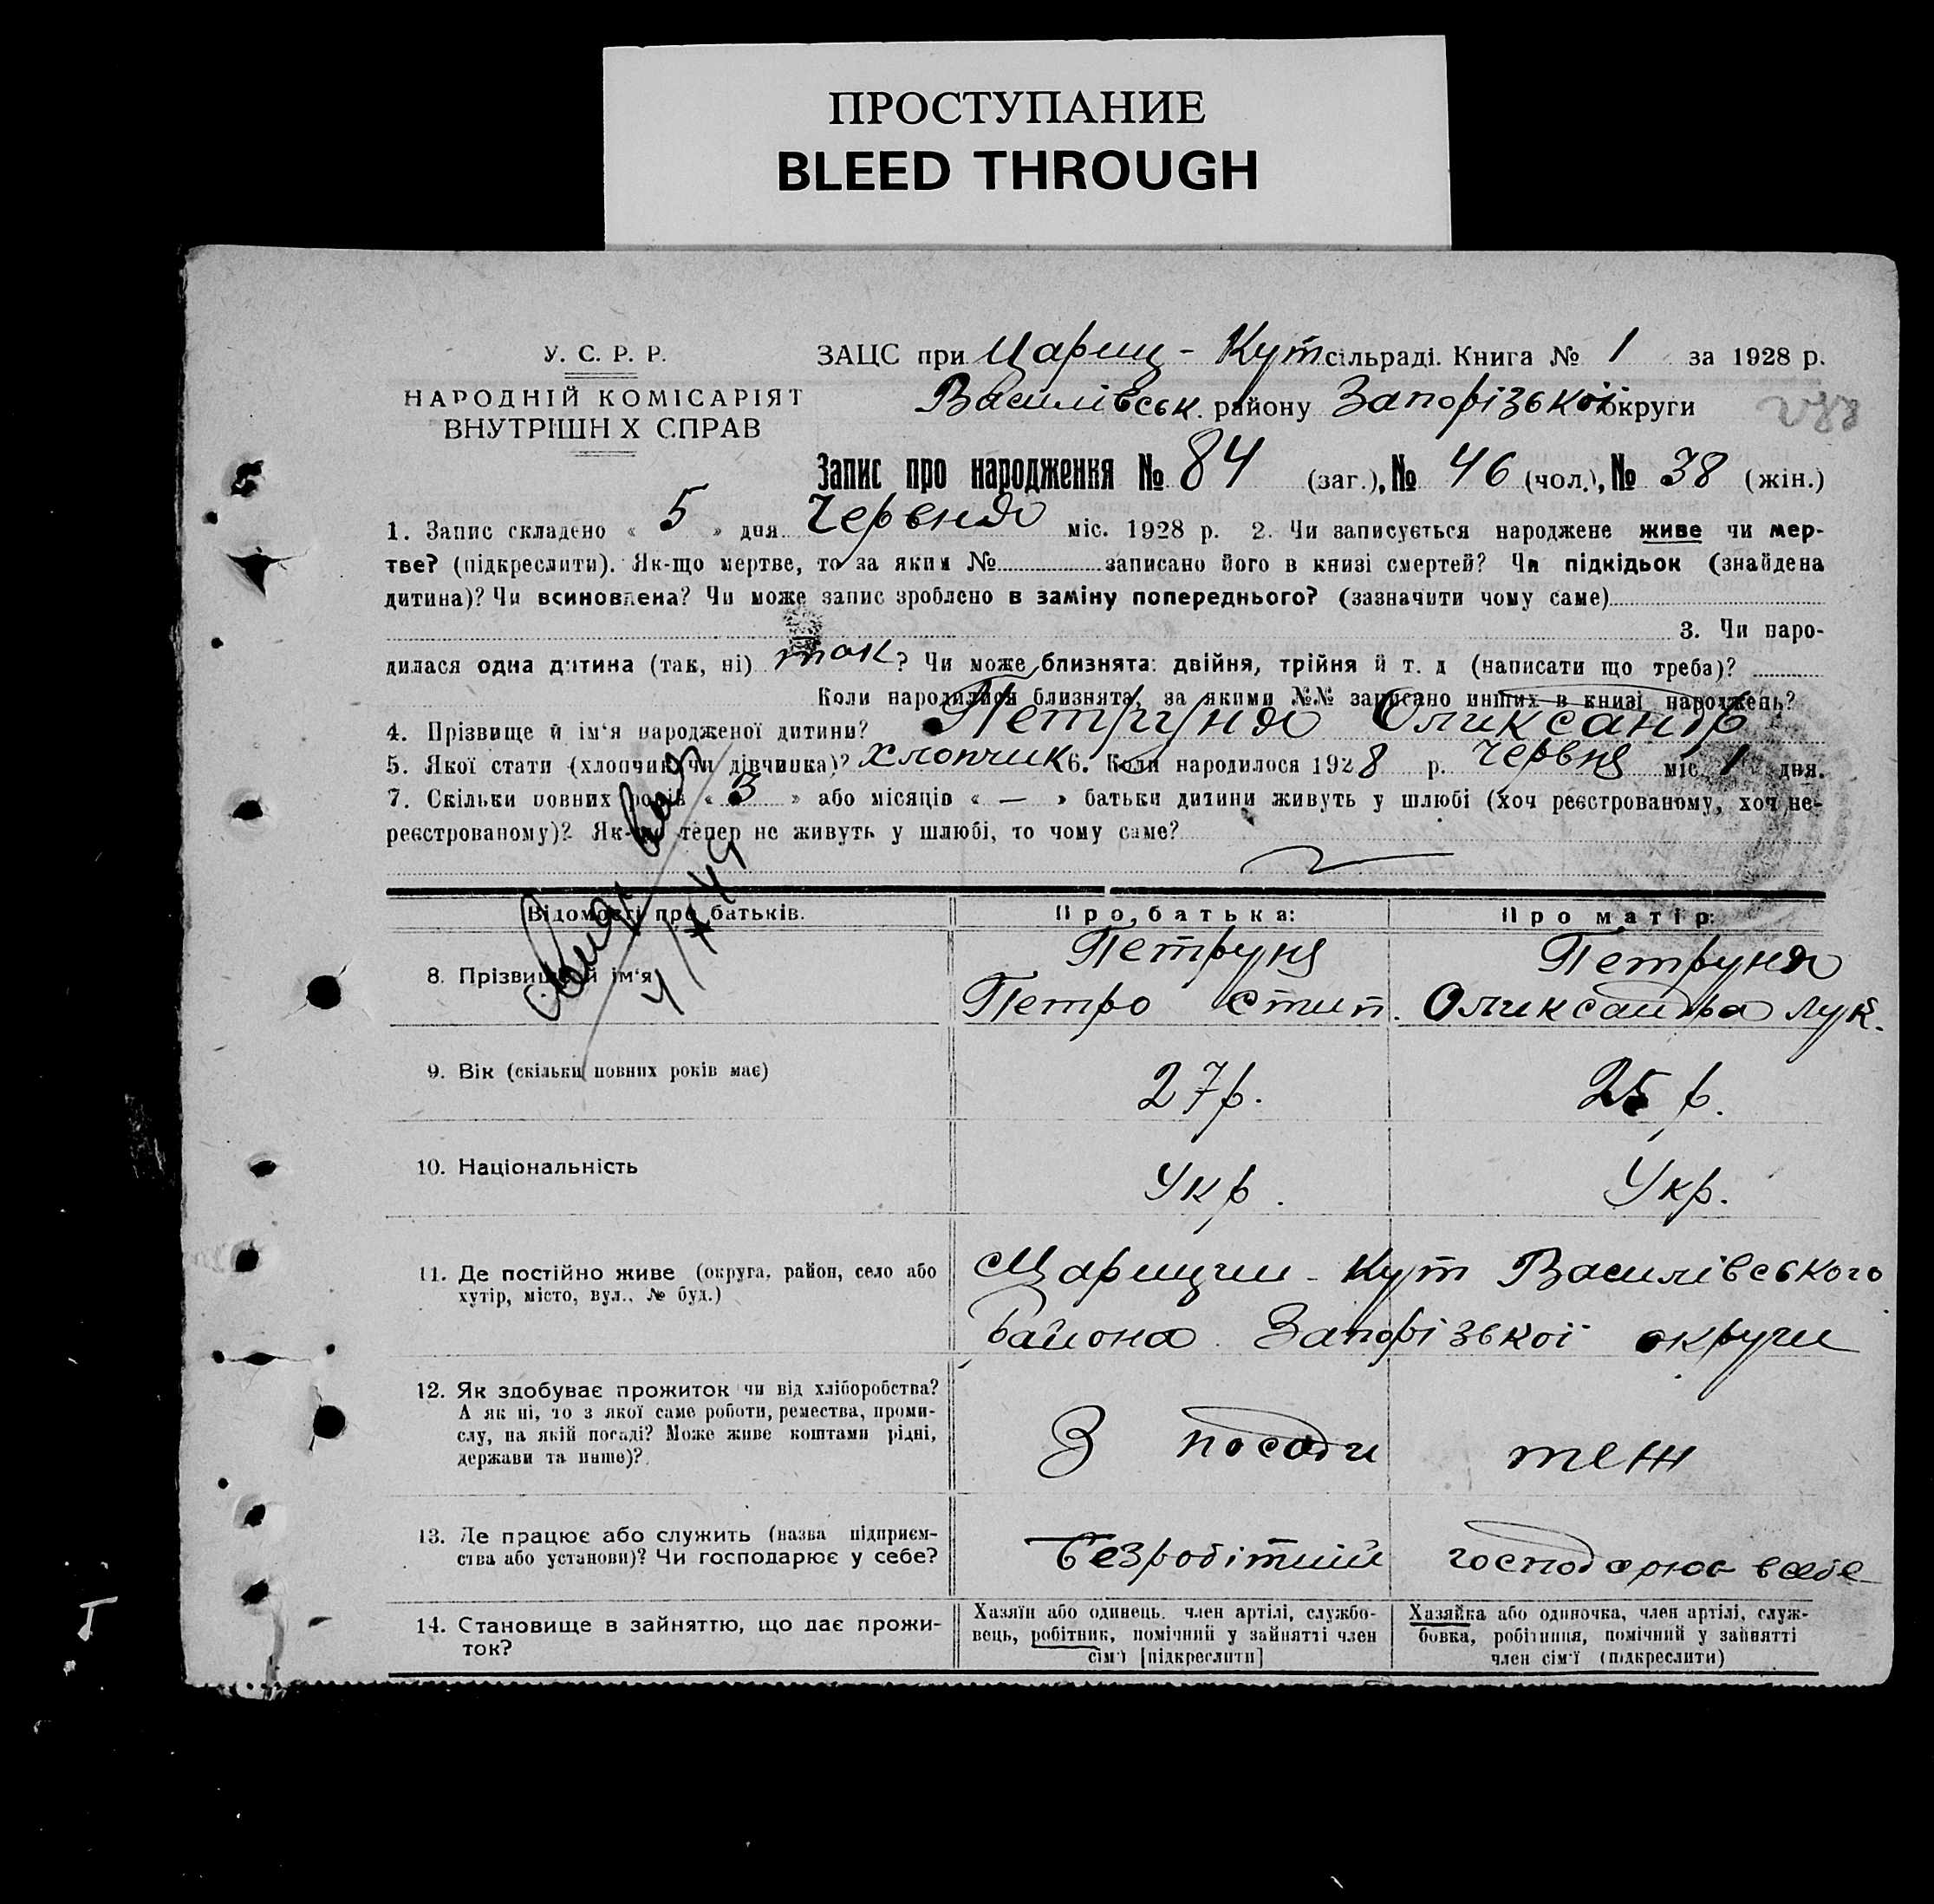 ПРОСТУПАНИЕ
BLEED THROUGH
У. С. Р. Р.
НАРОДНІЙ КОМІСАРІЯТ
ВНУТРІШН Х СПРАВ
ЗАЦС при Цариц - Кут сільраді. Книга № 1 за 1928 р.
Василівськ. району Запорізької округи
Запис про народження № 84 (заг.), № 46 (чол.), № 38 (жін.)
1. Запис складено « 5 » дня Червня міс. 1928 р. 2. Чи записується народжене живе чи мер-
тве? (підкреслити). Як-що мертве, то за яким № записано його в книзі смертей? Чи підкідьок (знайдена
дитина)? Чи всиновлена? Чи може запис зроблено в заміну попереднього? (зазначити чому саме)
3. Чи наро-
дилася одна дитина (так, ні) так? Чи може близнята: двійня, трійня й т. д (написати що треба)?
Коли народилися близнята, за якими №№ записано инших в книзі народжень?
4. Прізвище й ім'я народженої дитини? Петруня Олександр
5. Якої стати (хлопчик чи дівчинка)? хлопчик 6. Коли народилося 1928 р. червня міс 1 дня.
7. Скільки повних років « 3 » або місяців « — » батьки дитини живуть у шлюбі (хоч реєстрованому, хоч не-
реєстрованому)? Як-що тепер не живуть у шлюбі, то чому саме?
Відомості про батьків.
Про батька:
Про матір:
8. Прізвище й ім'я
Петруня
Петро Стип.
Петруня
Олександра Лук.
9. Вік (скільки повних років має)
27 р.
25 р.
10. Національність
Укр.
Укр.
11. Де постійно живе (округа, район, село або
хутір, місто, вул., № буд.)
Царицин - Кут Василівського
района Запорізької округи
12. Як здобуває прожиток чи від хліборобства?
А як ні, то з якої саме роботи, ремества, проми-
слу, на якій посаді? Може живе коштами рідні,
держави та инше)?
З посади
теж
13. Де працює або служить (назва підприєм-
ства або установи)? Чи господарює у себе?
Безробітний
господарює в себе
14. Становище в зайняттю, що дає прожи-
ток?
Хазяїн або одинець, член артілі, службо-
вець, робітник, помічний у зайнятті член
сім'ї [підкреслити]
Хазяйка або одиночка, член артілі, служ-
бовка, робітниця, помічний у зайнятті
член сім'ї (підкреслити)